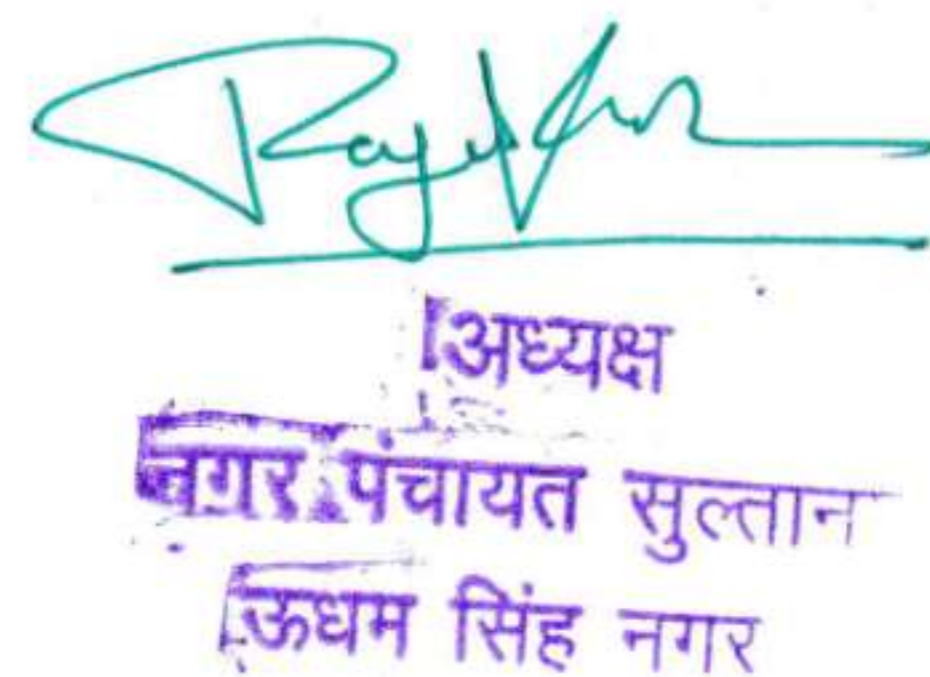 अध्यक्ष
नगर पंचायत सुल्तान
ऊधम सिंह नगर